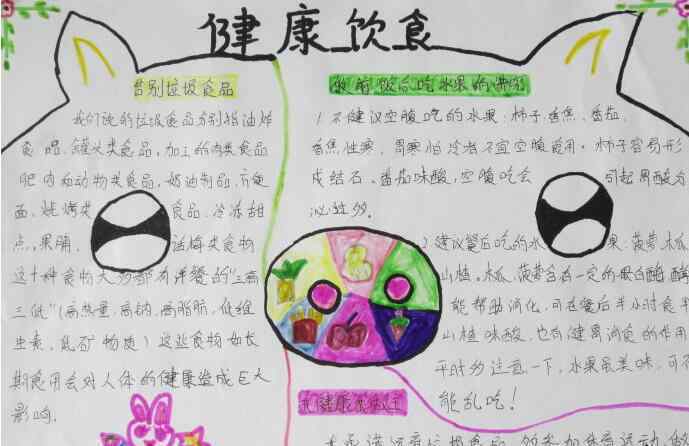 健康饮食
告别垃圾食品
我们说的垃圾食品分别指油炸
食品、罐头类食品、加工的肉类食品
肥肉和动物类食品、奶油制品、方便
面、烧烤类食品、冷冻甜
点、果脯、话梅类食物
这十种食物大多都有详餐的“三高
三低”(高热量、高钠、高脂肪、低维
生素、低矿物质)这些食物如长
期食用会对人体的健康造成巨大
影响.
饭前饭后吃水果的
1.不建议空腹吃的水果:柿子、香蕉、番茄,
香蕉性寒,胃寒怕冷者不宜空腹食用。柿子容易形
成结石、番茄味酸,空腹吃会引起胃酸分
泌过多.
2.建议餐后吃的水果:菠萝、木瓜、
山楂.木瓜、菠萝含有一定的蛋白酶
能帮助消化,可在餐后半小时食
山楂味酸,也有健胃消食的作用
平时多注意一下,水果虽美味,可不
能乱吃!
健康